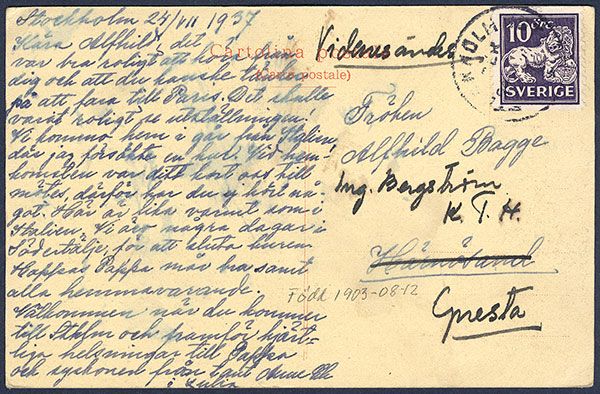 Stockholm 24/VII 1937
Kära Alfhild, det
var bra roligt att höra från
dig och att du kanske tänker
på att fara till Paris. Det skulle
varit roligt se utställningen!
Vi kommo hem i går från Italien,
där jag försökte en kur. Vid hem-
komsten var ditt kort oss till
mötes, därför har du ej hört nå-
got. Här är lika varmt som i
Italien. Vi äro några dagar i
Södertälje, för att sluta kuren.
Hoppas Pappa mår bra samt
alla hemmavarande.
Välkommen när du kommer
till Sthlm och framför hjärt-
liga helsningar till Pappa
och syskonen från tant Anne
Cartolina postale
(Carte postale)
Vidaresändes
10
SVERIGE
Fröken
Alfhild Bagge
Ing. Bergström
K. T. H.
Härnösand
Gnesta
Född 1903-08-12